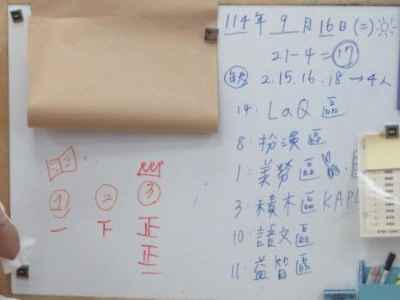 114年9月16日(二)
21-4=17
缺 2.15.16.18→4人
14. LaQ 區
8. 扮演區
1. 美勞區
3. 積木區KAPL
10. 語文區
11. 益智區
① ② ③
一 下 正
正